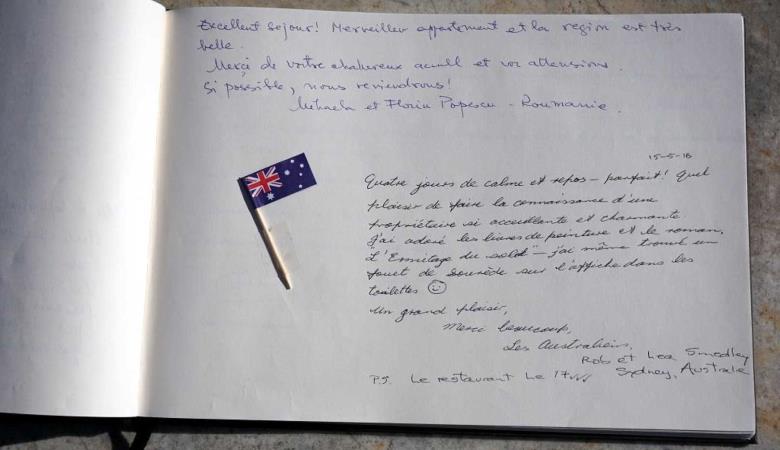 Excellent sejour! Merveilleux appartement et la region est très
belle.
Merçi de votre chalureux accuill et vos attensions.
Si possible, nous reviendrons!
Mihaela et Florin Popescu - Roumanie.
15-5-18
Quatre jours de calme et repos - parfait! Quel
plaiser de faire la connaissance d'une
propriétaire si accueillante et charmante.
J'ai adoré les livres de peinture et le roman,
"L'Ermitage du soleil" - j'ai même trouvé un
jouet de sur l'affiche dans les
toilettes
Un grand plaisir,
Merci beaucoup,
Les Australiens,
Rob et Lea Smedley
Sydney, Australie
P.S. Le restaurant Le 17 ✓✓✓